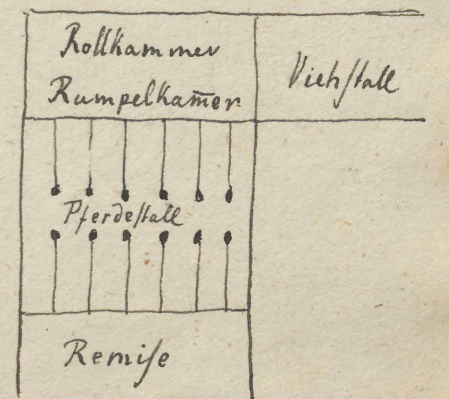 Rollkammer
Rumpelkam̅er
Viehſtall
Pferdeſtall
Remiſe